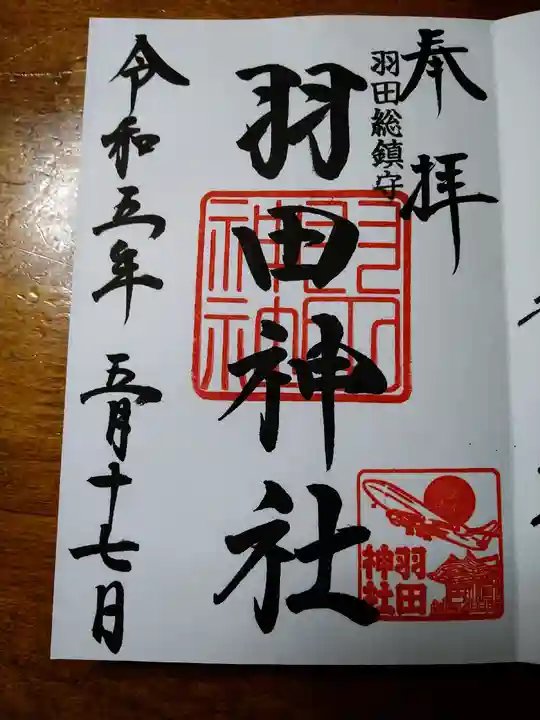 奉拝
羽田総鎮守
羽田神社
羽田神社
羽田
神社
令和五年 五月十七日